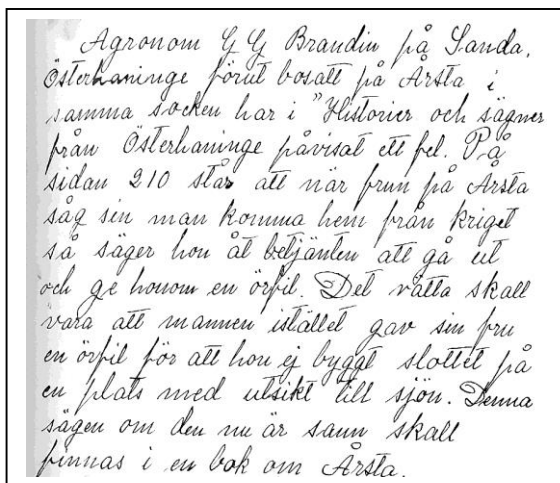 Agronom G G Brandin på Sanda,
Österhaninge förut bosatt på Årsta i
samma socken har i "Historier och sägner
från Österhaninge påvisat ett fel. På
sidan 210 står att när frun på Årsta
såg sin man komma hem från kriget
så säger hon åt betjänten att gå ut
och ge honom en örfil. Det rätta skall
vara att mannen istället gav sin fru
en örfil för att hon ej byggt slottet på
en plats med utsikt till sjön. Denna
sägen om den nu är sann skall
finnas i en bok om Årsta.